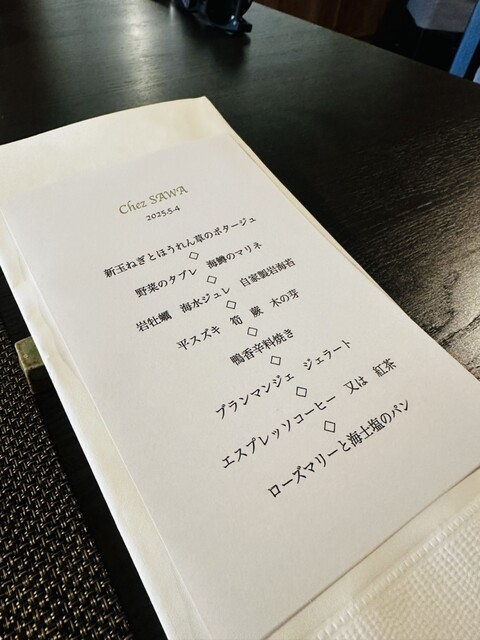 Chez SAWA
2025.5.4
新玉ねぎとほうれん草のポタージュ
◇
野菜のタブレ 海鱒のマリネ
◇
岩牡蠣 海水ジュレ 自家製岩海苔
◇
平スズキ 筍 蕨 木の芽
◇
鴨香辛料焼き
◇
ブランマンジェ ジェラート
◇
エスプレッソコーヒー 又は 紅茶
◇
ローズマリーと海士塩のパン